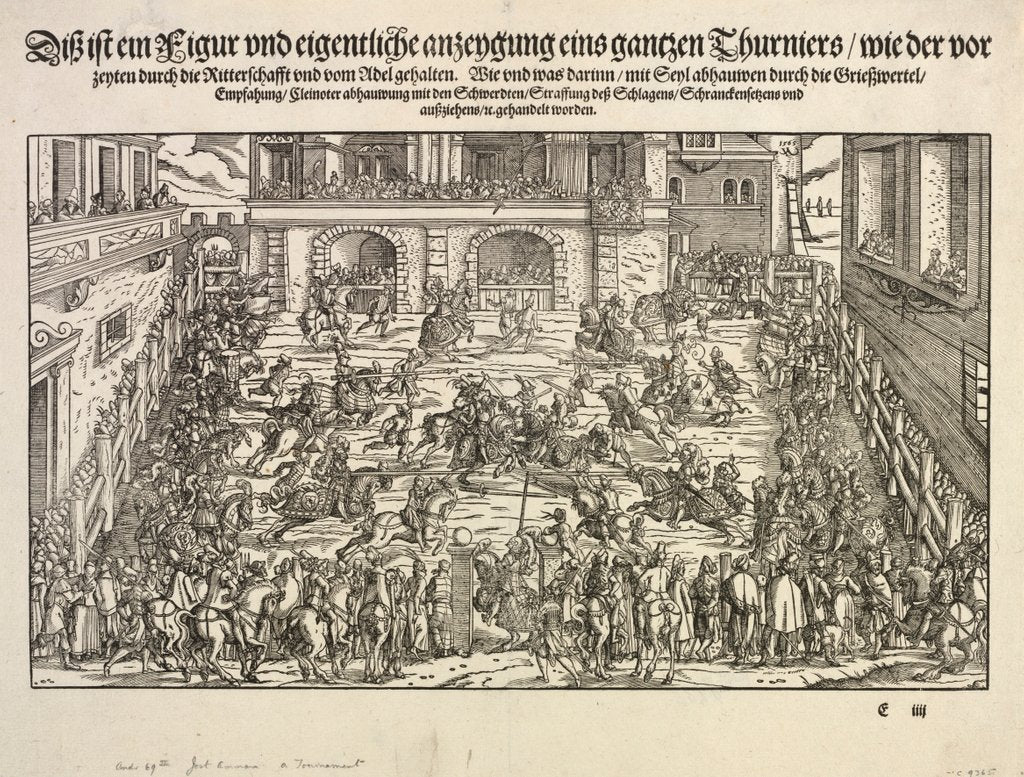 Diß ist ein Figur vnd eigentliche anzeygung eins gantzen Thurniers / wie der vor
zeyten durch die Ritterschafft vnd vom Adel gehalten. Wie vnd was darinn / mit Seyl abhauwen durch die Grießwertel /
Empfahung / Cleinoter abhauwung mit den Schwerdten / Straffung deß Schlagens / Schranckensetzens vnd
außziehens / ꝛc. gehandelt worden.
1565
E iiij
Andr 69 III Jost Amman a Tournament